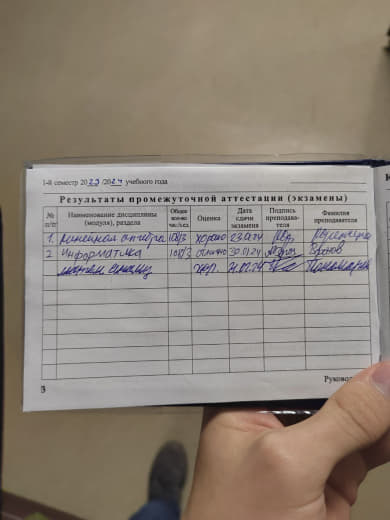 1-й семестр 2023/2024 учебного года
Результаты промежуточной аттестации (экзамены)
№ п/п Наименование дисциплины (модуля), раздела Общее кол-во час./з.ед. Оценка Дата сдачи экзамена Подпись преподавателя Фамилия преподавателя
1. Линейная алгебра 108/3 хорошо 23.01.24
2 Информатика 108/3 отлично 30.01.24
матем анализ 31.01.24
3
Руковод